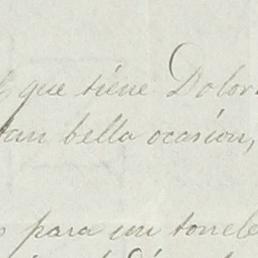 que tiene Dolor
tan bella ocasion,
para un tonele